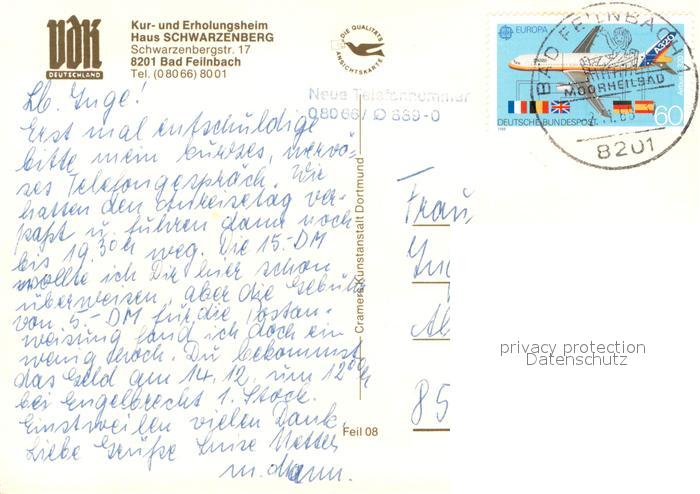 VdK
DEUTSCHLAND
Kur- und Erholungsheim
Haus SCHWARZENBERG
Schwarzenbergstr. 17
8201 Bad Feilnbach
Tel. (0 80 66) 80 01
DIE QUALITÄTS
ANSICHTSKARTE
Neue Telefonnummer
08066/ 889-0
EUROPA
A320
DEUTSCHE BUNDESPOST
60
BAD FEILNBACH 1
MOORHEILBAD
8201
Lb. Inge!
Erst mal entschuldige
bitte mein kurzes, nervö-
ses Telefongespräch. Wir
hatten den Anreisetag ver-
paßt u. fuhren dann noch
bis 19.30h weg. Die 15.-DM
wollte ich Dir hier schon
überweisen, aber die Gebühr
von 5.-DM für die Postan-
weisung fand ich doch ein
wenig hoch. Du bekommst
das Geld am 14.12. um 12 00h
bei Engelbrecht 1. Stock.
Einstweilen vielen Dank,
Liebe Grüße Luise
m. Mann.
Cramers Kunstanstalt Dortmund
Feil 08
Frau
85
privacy protection
Datenschutz